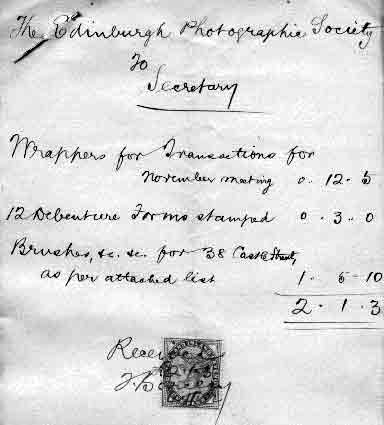 The Edinburgh Photographic Society
To
Secretary
Wrappers for Transactions for
November meeting 0 . 12 . 5
12 Debenture Forms stamped 0 . 3 . 0
Brushes, &c. &c. for 38 Castle Street,
as per attached list 1 . 5 . 10
2 . 1 . 3